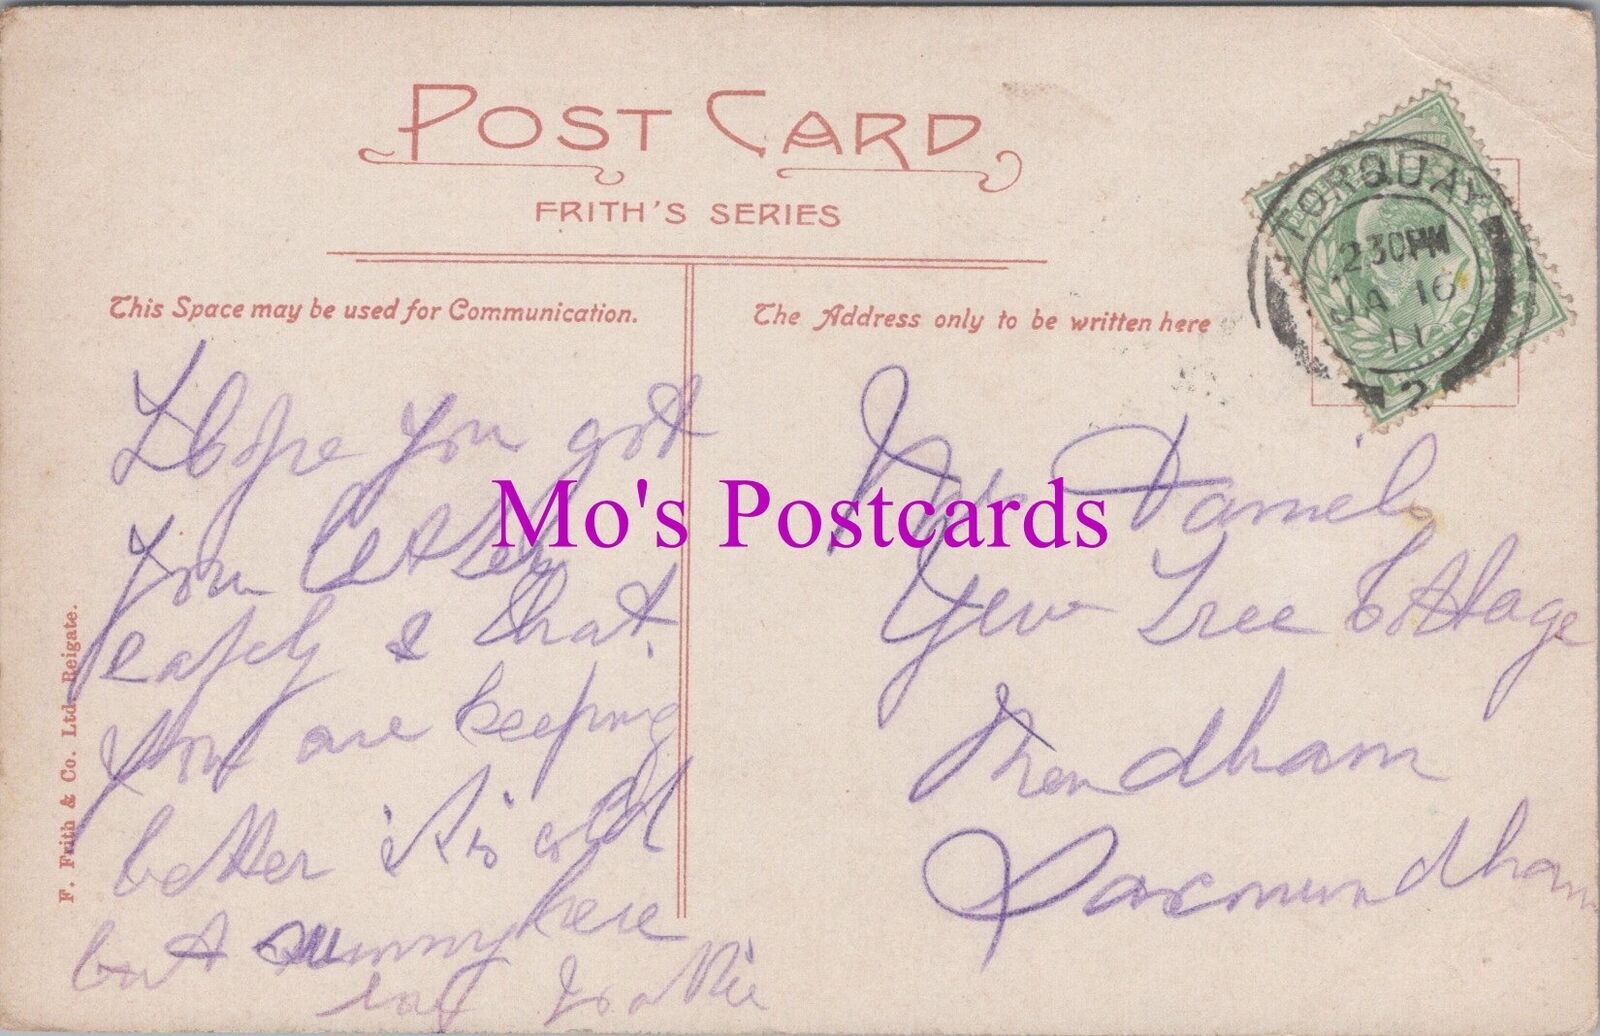 POST CARD
FRITH'S SERIES
This Space may be used for Communication.
The Address only to be written here
TORQUAY
2 30 PM
JA 16
11
2
F. Frith & Co. Ltd. Reigate.
I hope you got
your letter
safely & that
you are keeping
better it is cold
but sunny here
Mrs Daniels
Yew Tree Cottage
Rendham
Saxmundham
Mo's Postcards